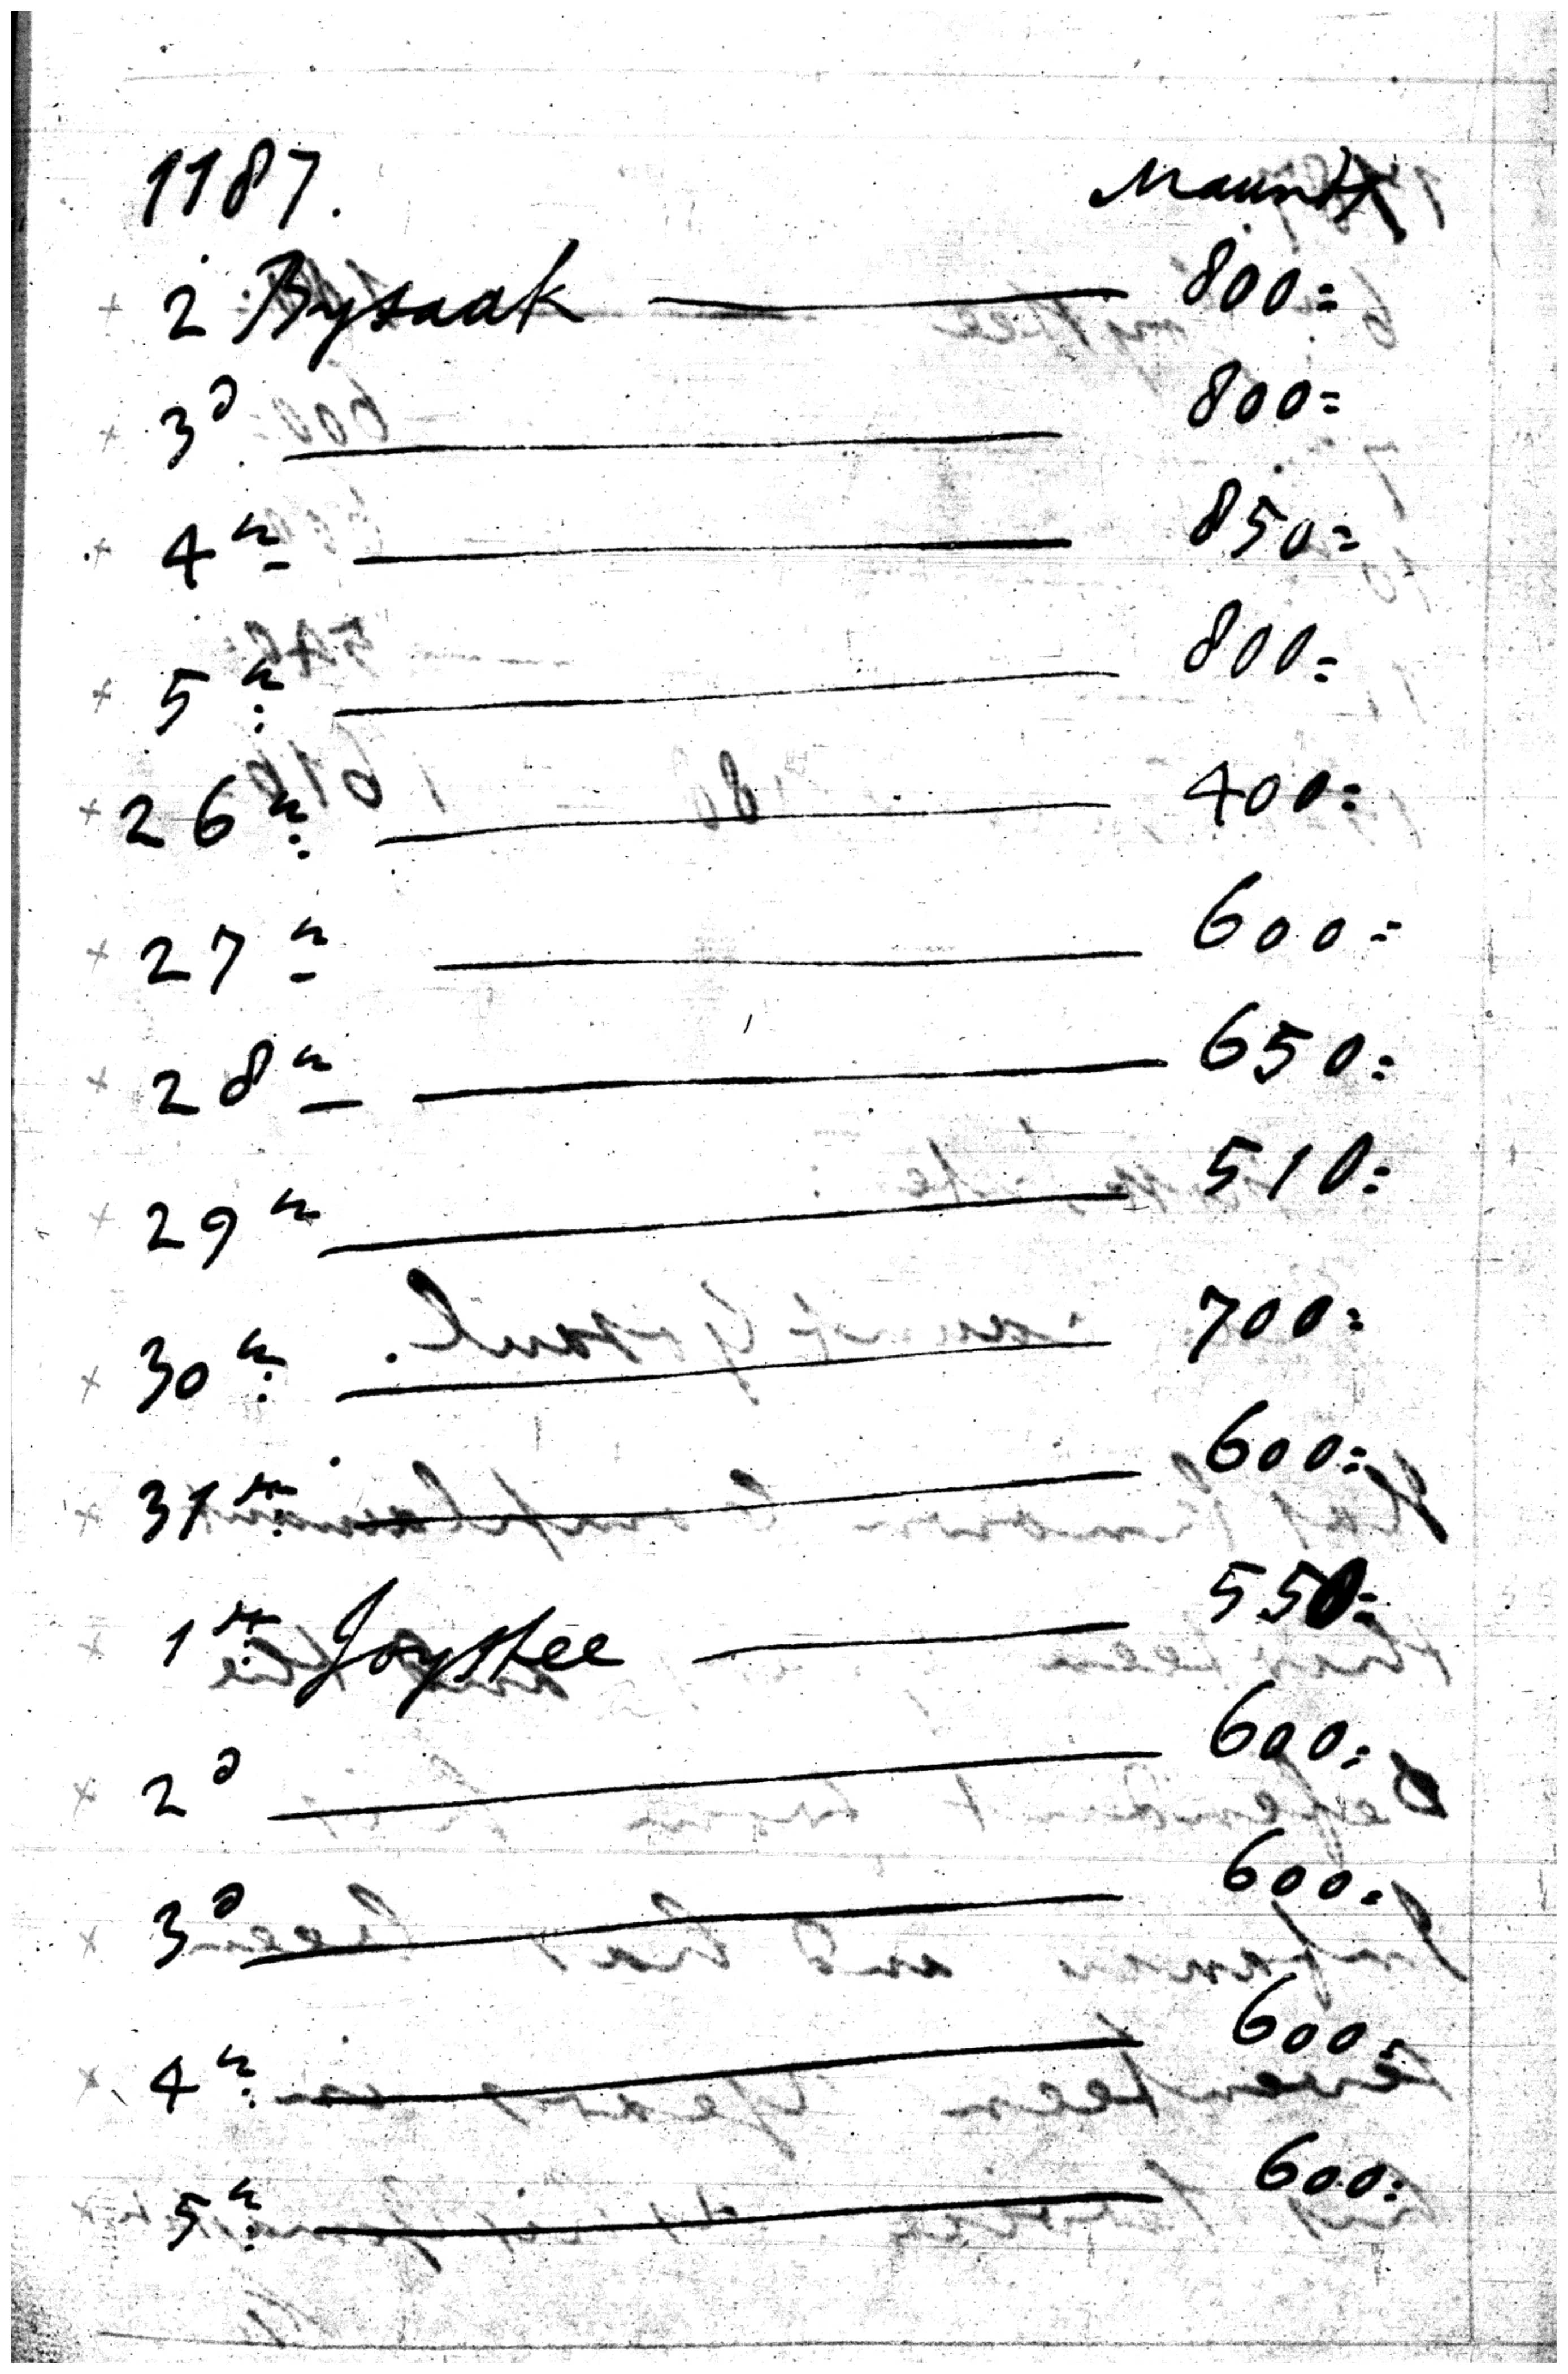 1187. Maunds
2 Bysaak — 800=
3d — 800=
4th — 850=
5th — 800=
26th — 400=
27th — 600=
28th — 650=
29th — 510=
30th — 700=
31st — 600=
1st Joystee — 550=
2d — 600=
3d — 600=
4th — 600=
5th — 600=